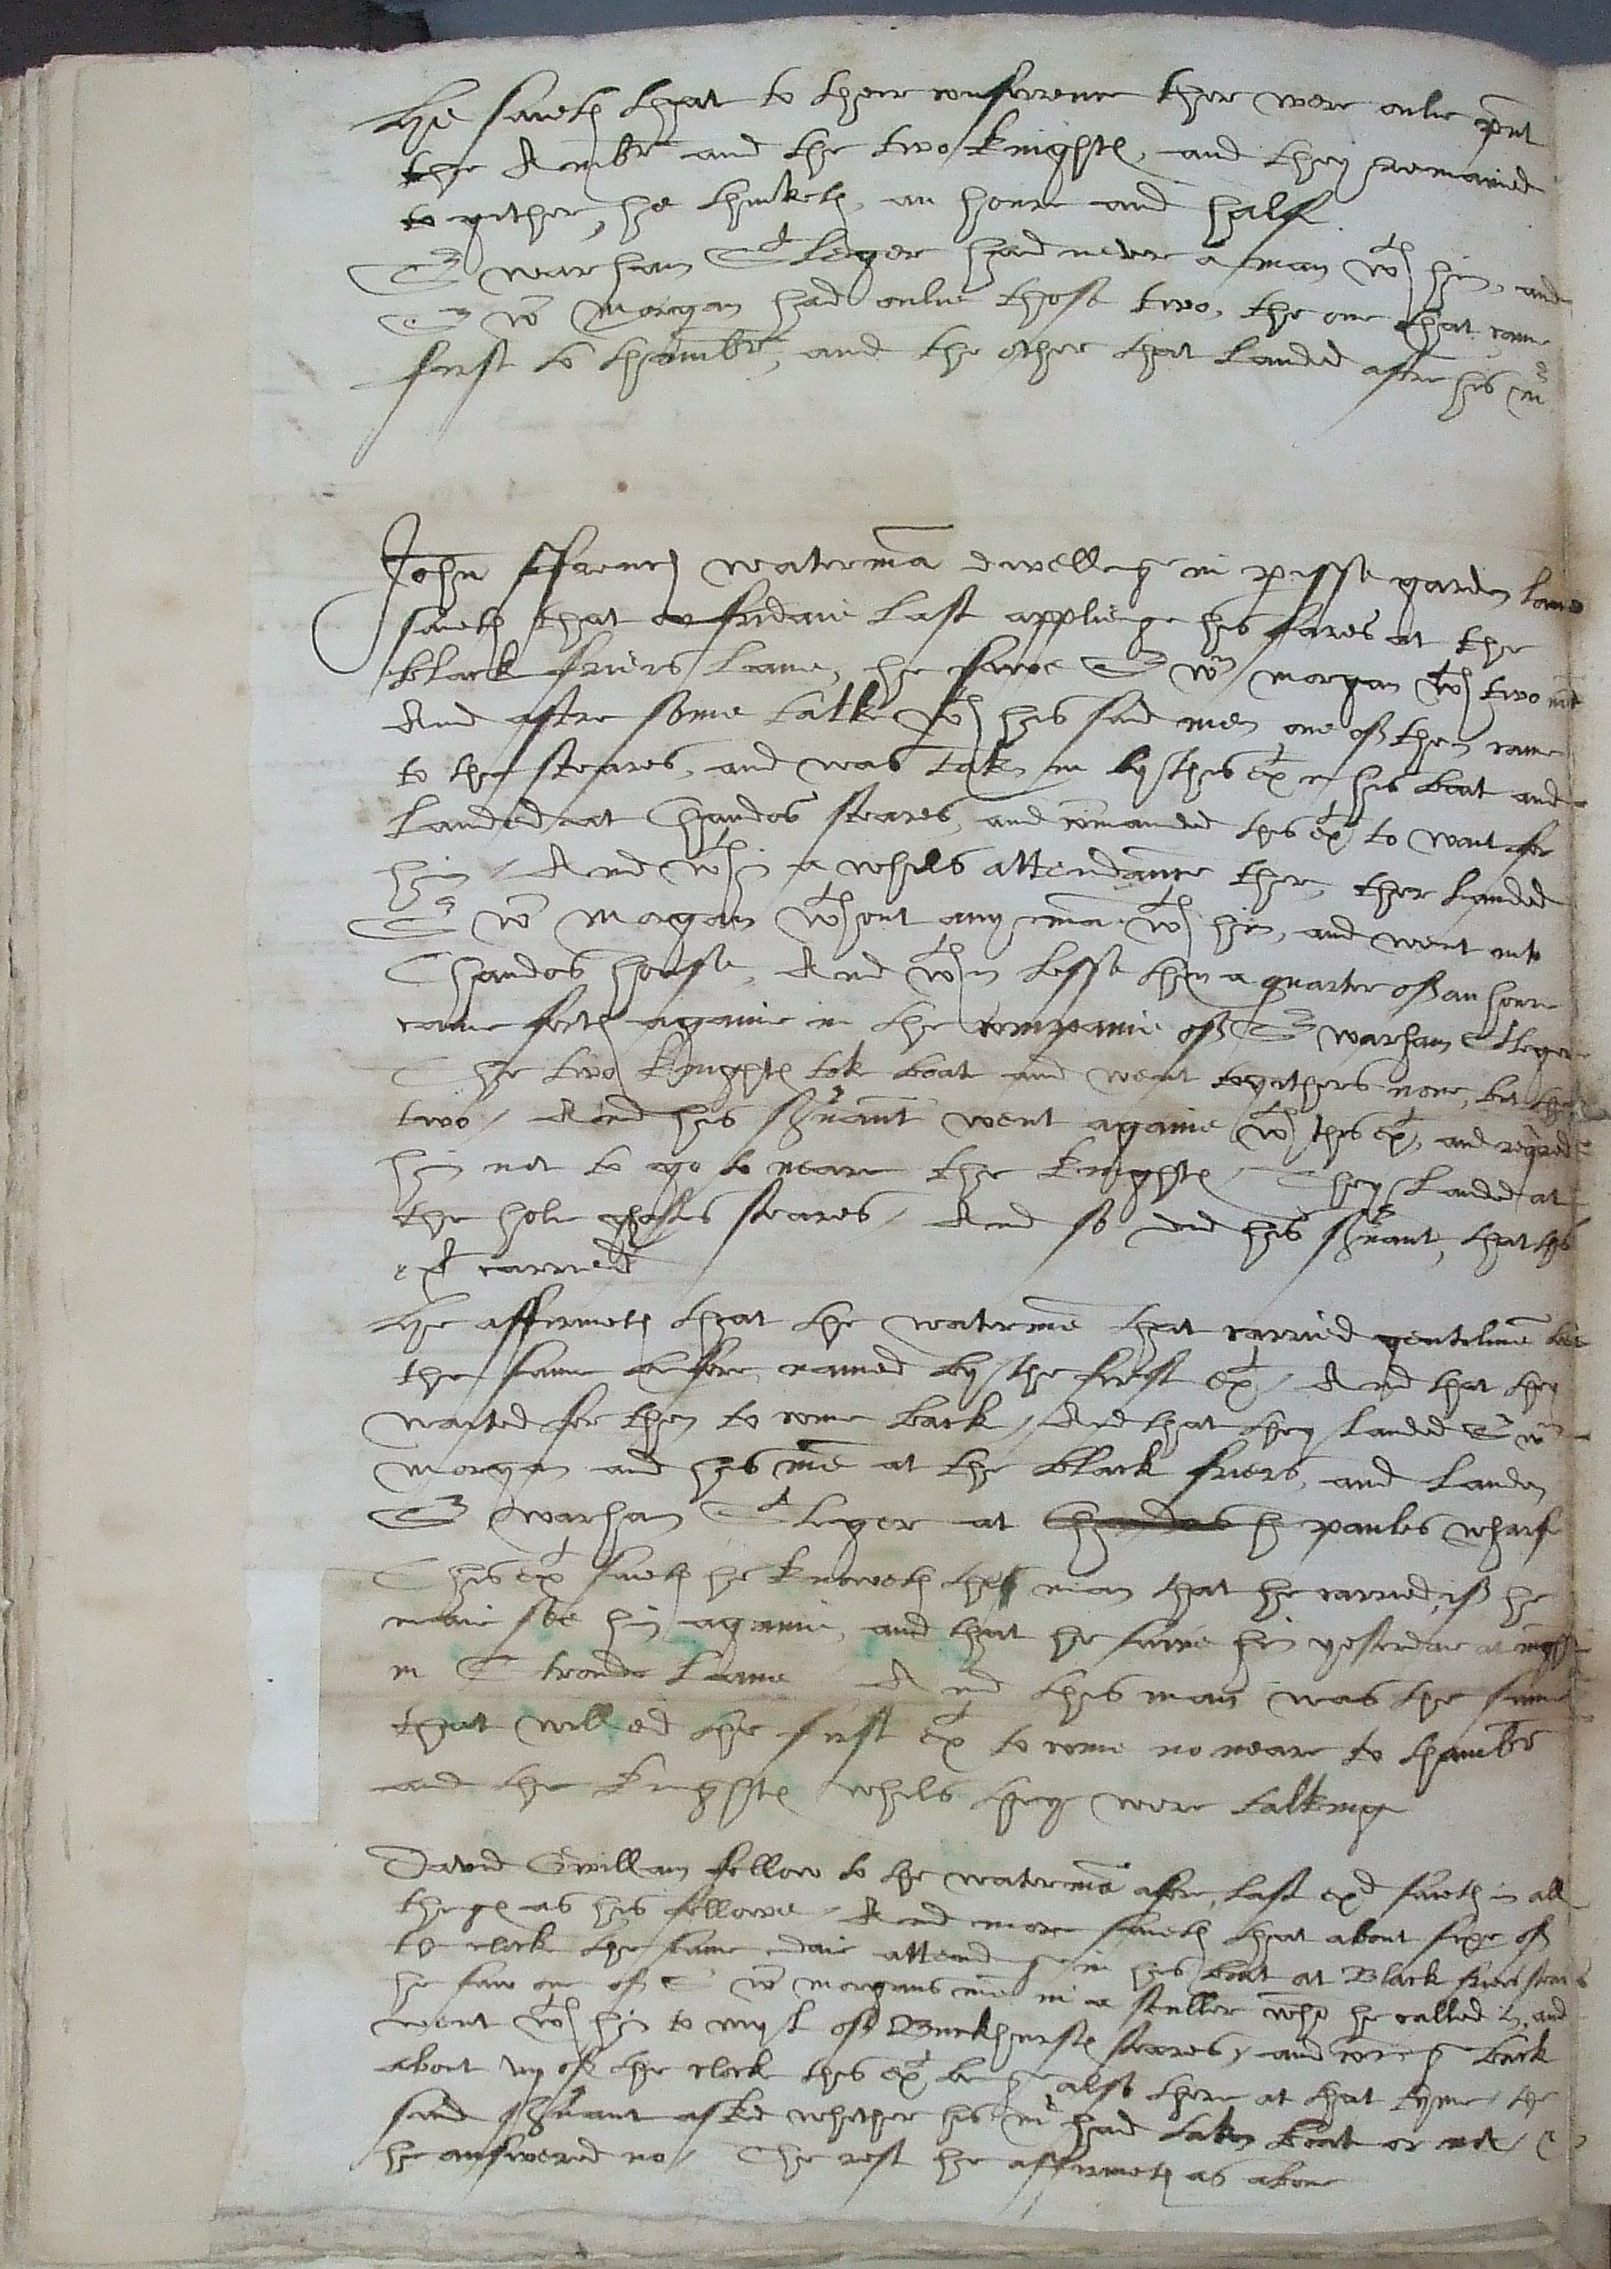 He saieth that to their conference ther were onlie pnt
the Ambr and the two knightes, and they remained
to gither, he thinketh, an houre and half
Sr warham St leger had never a man wth him, and
Sr wm Morgan had onlie those two, the one that came
first to thambr, and the other that landed after his mr
John ffrench waterma dwellinge in pisse garden lane
saieth that on fridaie last applienge his fares at the
black friers lane, he sawe Sr wm morgan wth two me
And after some talke wth his said men one of them came
to the steares, and was taken in by this ext in his boat and
landed at Chandos steares, and comanded this ext to wait for
him / And wthin a whiles attendance ther, ther landed
Sr wm Morgan wthout any ma wth him, and went into
Chandos house, And wthin lesse then a quarter of an houre
came forth againe in the companie of Sr warham St leger
The two knightes tok boat and went togithers none, but they
two / And his servant went againe wth this ext, and reqred
him not to go to neare the knightes / They landed at
the holie ghostes steares / And so did his servant, that this
ext carried
He affirmeth that the waterme that carried gentelme be
the same before named by the first ext / And that they
waited for them to come back / And that they landed Sr wm
Morgan and his me at the black friers, and landen
Sr warham St leger at Chandos h paules wharf
This ext saieth he knoweth the man that he carried, if he
maie see him againe, and that he sawe him yesterdaie at night
in Tronde lane And this man was the same
that willed the first ext to come no neare to thambr
and the knightes whiles they were talking
David Gwillam fellow to the waterma afore last exd saieth in all
thinges as his fellowe / And more saieth that about sixe of
the clock the same daie attendinge in his boat at Black friers steares
he saw one of Sr wm morgans me in a sculler whom he called in, and
went wth him to my L of Buckhurstes steares, and coming back
about vij of the clock this ext being also there at that tyme / the
said servant asked whether his mr had taken boat or not /
he answered no / The rest he affirmeth as above